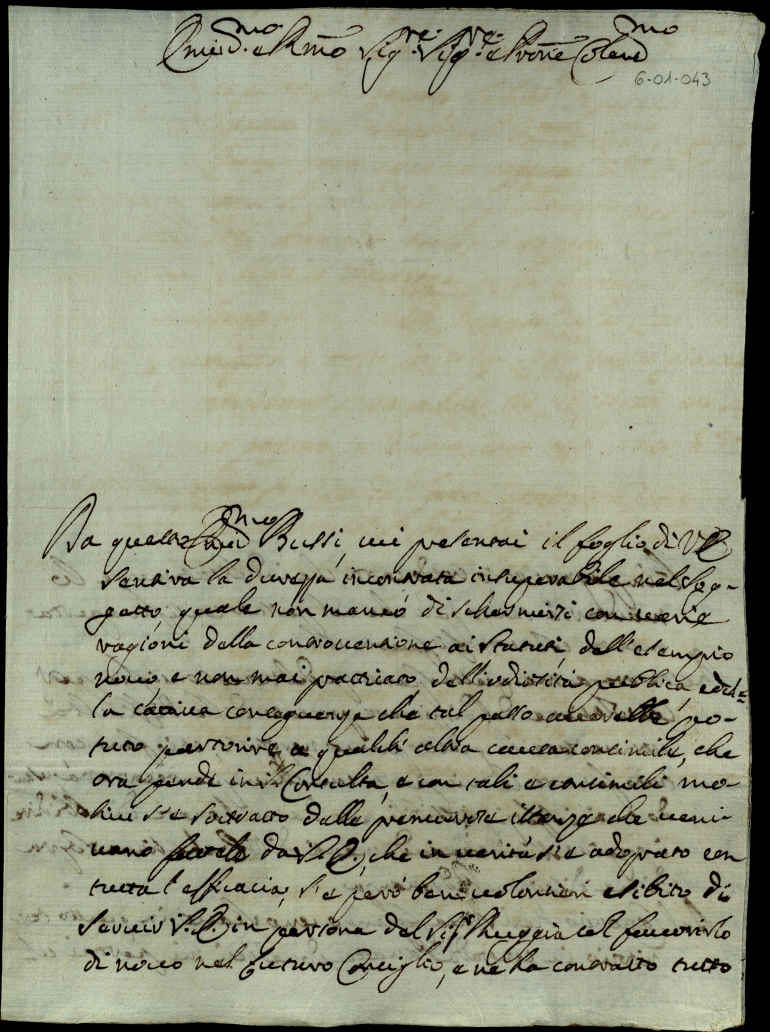 Em.mo e R.mo Sig.re Sig.re e Pron̄e Colend.mo
6-01-043
Da questo Em.mo Bussi, cui presentai il foglio di V.E.
sentiva la durezza incontrata insuperabile nel sog-
getto, quale non mancò di schermirsi con varie
ragioni della contravenzione ai Statuti, dell'esempio
novo e non mai praticato dell'odiosità publica, e del-
la cattiva conseguenza che tal passo averebbe po-
tuto partorire a qualch'altra causa consimile, che
ora pende in Consulta, e con tali e consimili mo-
tivi s'è sottratto dalle premurose istanze che veni-
vano fatte da V.E., che in verità s'è adoprato con
tutta l'efficacia, s'è però ben volontieri esibito di
servir V.E. in persona del Sig.r Ruggia col favorirlo
di novo nel futuro Conseglio, e ne ha contratto tutto